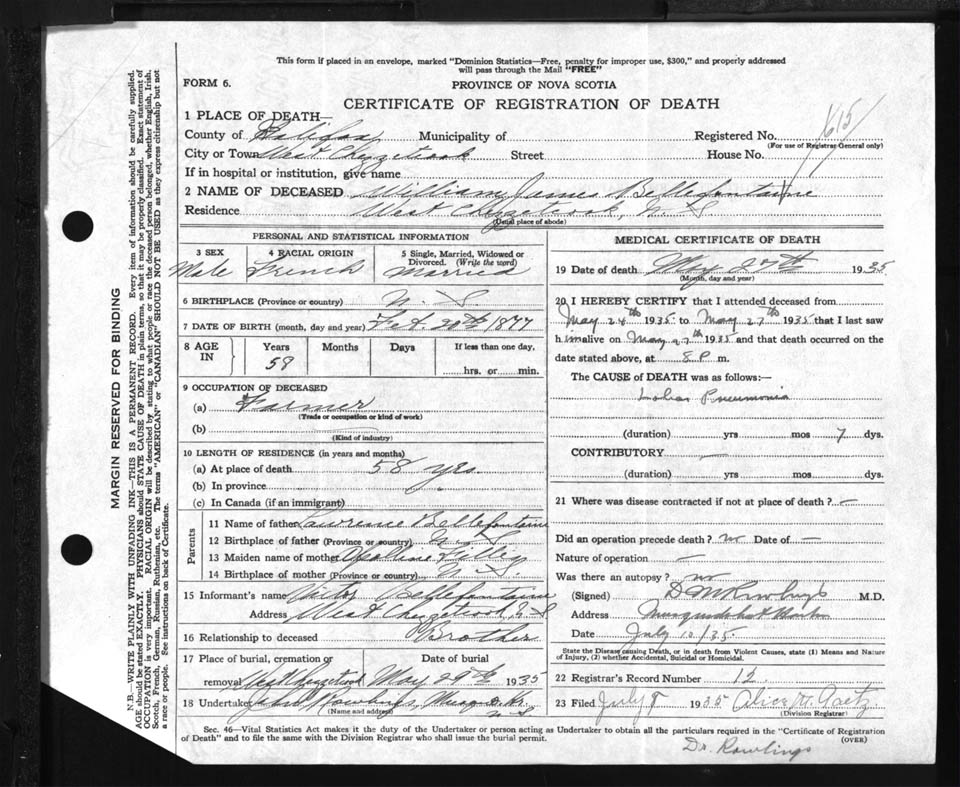 This form if placed in an envelope, marked "Dominion Statistics—Free, penalty for improper use, $300," and properly addressed
will pass through the Mail "FREE"
FORM 6.
PROVINCE OF NOVA SCOTIA
CERTIFICATE OF REGISTRATION OF DEATH
1 PLACE OF DEATH—
County of Halifax Municipality of Registered No. 1615
(For use of Registrar General only)
City or Town West Chezzetcook Street House No.
If in hospital or institution, give name
2 NAME OF DECEASED William James Bellefontaine
Residence West Chezzetcook, N. S
(Usual place of abode)
PERSONAL AND STATISTICAL INFORMATION
3 SEX 4 RACIAL ORIGIN 5 Single, Married, Widowed or
Divorced. (Write the word)
Male French Married
6 BIRTHPLACE (Province or country) N. S
7 DATE OF BIRTH (month, day and year) 20th 1877
8 AGE IN Years Months Days If less than one day,
58 hrs. or min.
9 OCCUPATION OF DECEASED
(a) Farmer
(Trade or occupation or kind of work)
(b)
(Kind of industry)
10 LENGTH OF RESIDENCE (in years and months)
(a) At place of death 58 yrs.
(b) In province
(c) In Canada (if an immigrant)
Parents
11 Name of father Lawrence Bellefontaine
12 Birthplace of father (Province or country) N. S
13 Maiden name of mother
14 Birthplace of mother (Province or country) N. S
15 Informant's name Victor Bellefontaine
Address West Chezzetcook, N. S
16 Relationship to deceased Brother
17 Place of burial, cremation or Date of burial
removal West Chezzetcook May 29th 1935
18 Undertaker Rowlings,
(Name and address)
N.S
MEDICAL CERTIFICATE OF DEATH
19 Date of death May 27th 1935
(Month, day and year)
20 I HEREBY CERTIFY that I attended deceased from
May 24th 1935 to May 27th 1935 that I last saw
him alive on May 27th 1935 and that death occurred on the
date stated above, at 8 P m.
The CAUSE of DEATH was as follows:—
Lobar Pneumonia
(duration) yrs mos 7 dys.
CONTRIBUTORY —
(duration) yrs mos dys.
21 Where was disease contracted if not at place of death? —
Did an operation precede death? no Date of —
Nature of operation —
Was there an autopsy? no
(Signed) Rowlings M.D.
Address Musquodoboit Harbor
Date July 10/35.
State the Disease causing Death, or in death from Violent Causes, state (1) Means and Nature
of Injury, (2) whether Accidental, Suicidal or Homicidal.
22 Registrar's Record Number 12.
23 Filed July 8 1935 Alice W. Gaetz
(Division Registrar)
Sec. 46—Vital Statistics Act makes it the duty of the Undertaker or person acting as Undertaker to obtain all the particulars required in the "Certificate of Registration
of Death" and to file the same with the Division Registrar who shall issue the burial permit.
(OVER)
Dr. Rowlings
MARGIN RESERVED FOR BINDING
N.B.—WRITE PLAINLY WITH UNFADING INK—THIS IS A PERMANENT RECORD. Every item of information should be carefully supplied.
AGE should be stated EXACTLY. PHYSICIANS should STATE CAUSE OF DEATH in plain terms, so that it may be properly classified. Exact statement of
OCCUPATION is very important. RACIAL ORIGIN will be described by stating to what people or race the deceased person belonged, whether English, Irish,
Scotch, French, German, Russian, Ruthenian, etc. The terms "AMERICAN" or "CANADIAN" SHOULD NOT BE USED as they express citizenship but not
a race or people. See instructions on back of Certificate.